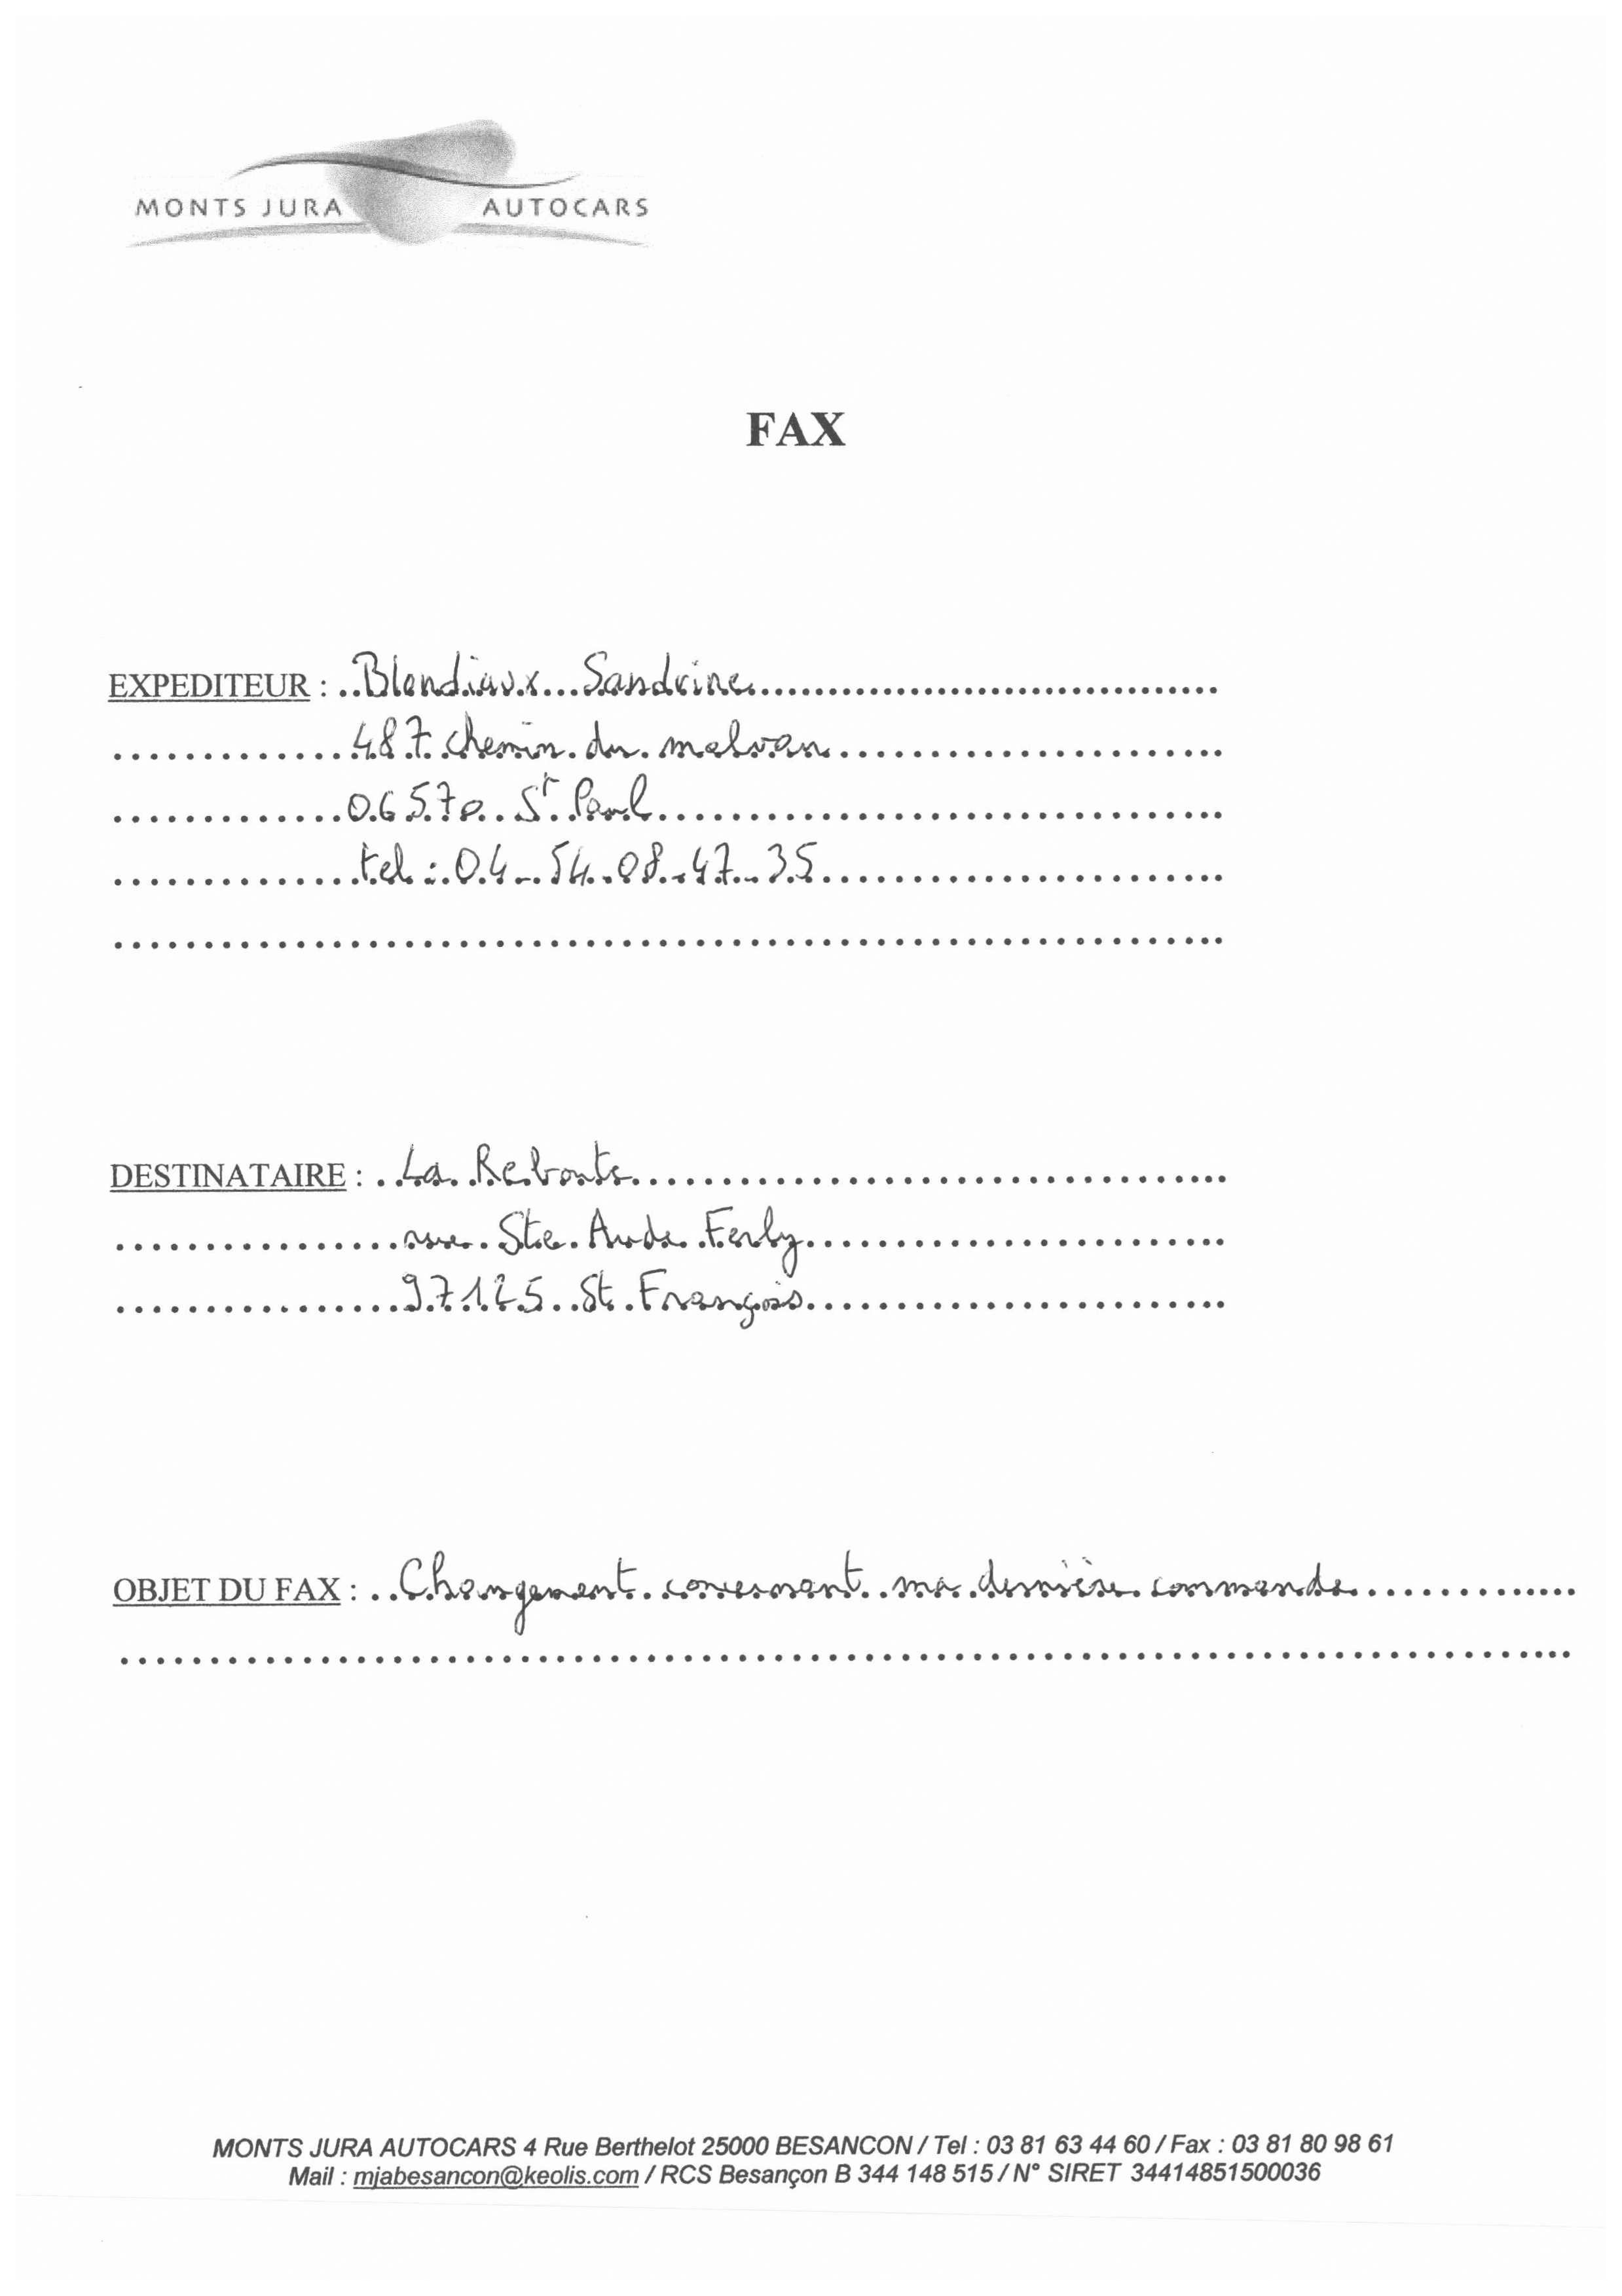 MONTS JURA AUTOCARS
FAX
EXPEDITEUR : Blondiaux Sandrine
487 chemin du malvan
06570 St Paul
tel : 04 54 08 47 35
DESTINATAIRE : La Redoute
rue Ste Aude Ferly
97125 St François
OBJET DU FAX : Changement concernant ma dernière commande
MONTS JURA AUTOCARS 4 Rue Berthelot 25000 BESANCON / Tel : 03 81 63 44 60 / Fax : 03 81 80 98 61
Mail : mjabesancon@keolis.com / RCS Besançon B 344 148 515 / N° SIRET 34414851500036